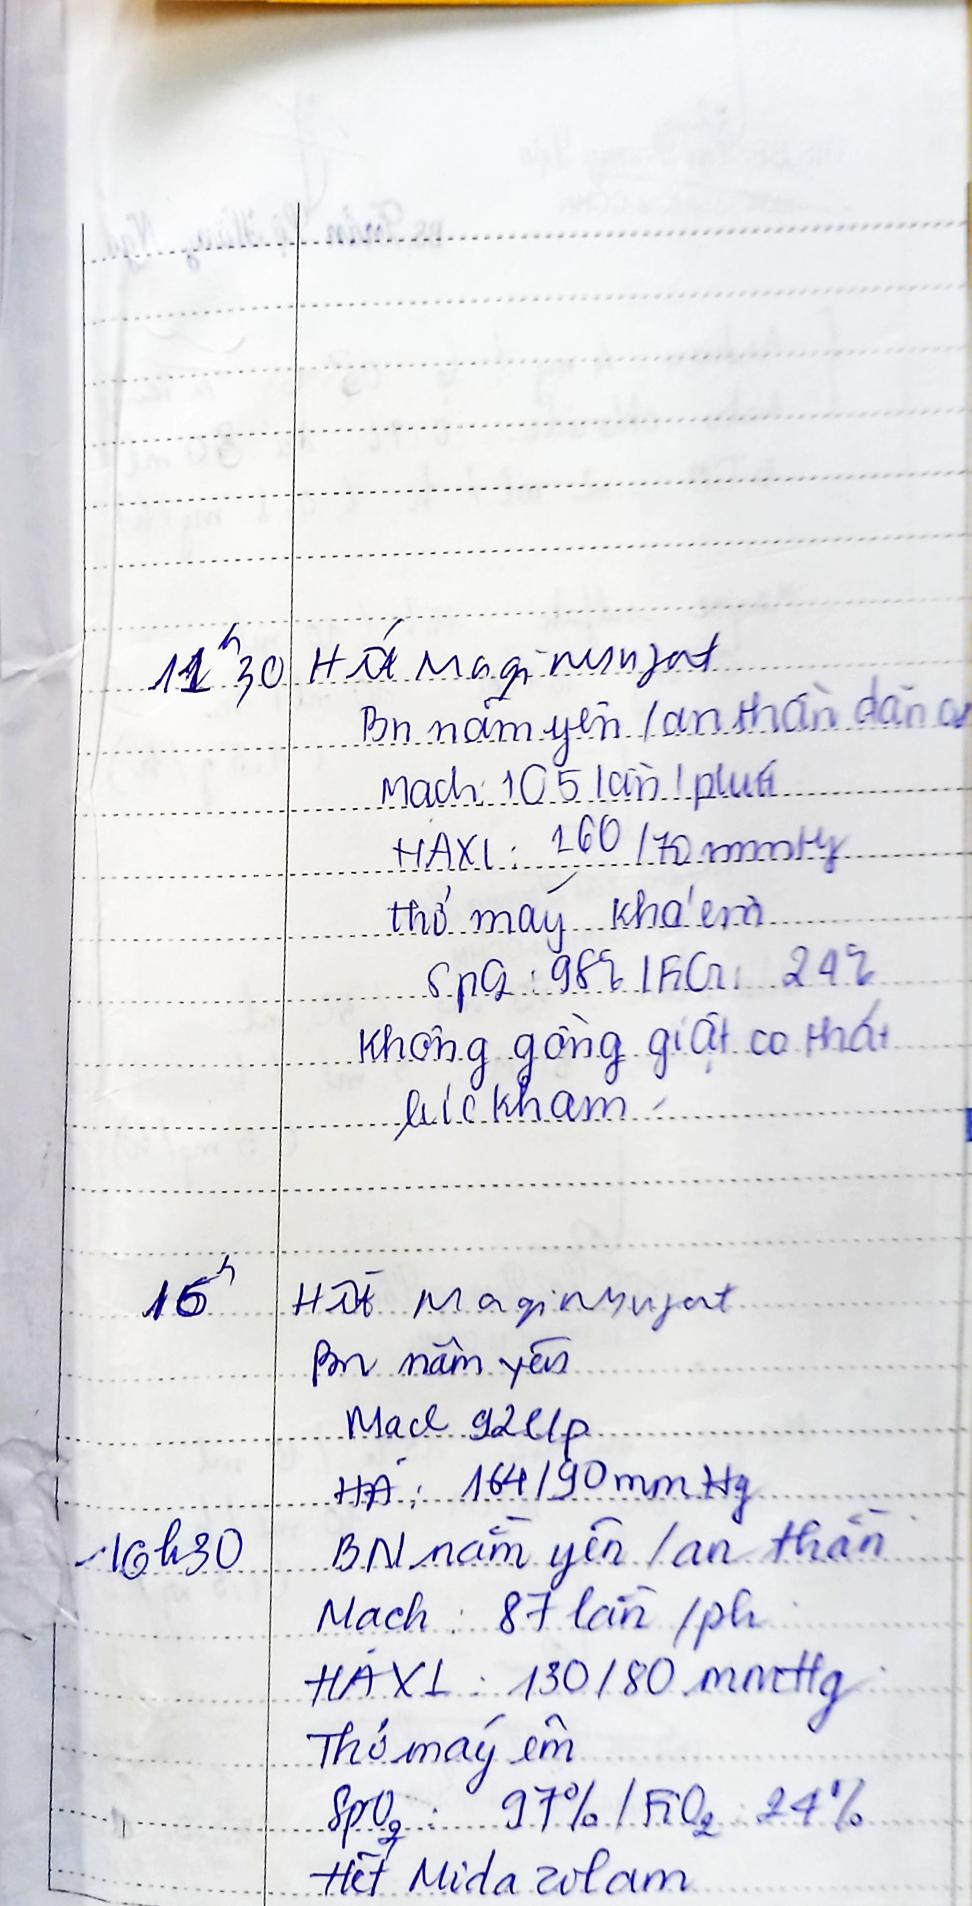 11h30 Hết Maginnsujat
Bn nằm yên / an thần dãn cơ
Mạch: 105 lần / phút
HAXL: 160/70 mmHg
thở máy khá êm
SpO2: 98% / FiO2: 24%
Không gồng giật co thắt
lúc khám
16h Hết Maginnsujat
Bn nằm yên
Mạch 92 l/p
HA: 164/90 mmHg
16h30 BN nằm yên / an thần
Mạch: 87 lần / ph
HAXL: 130/80 mmHg
Thở máy êm
SpO2: 97% / FiO2: 24%
Hết Midazolam